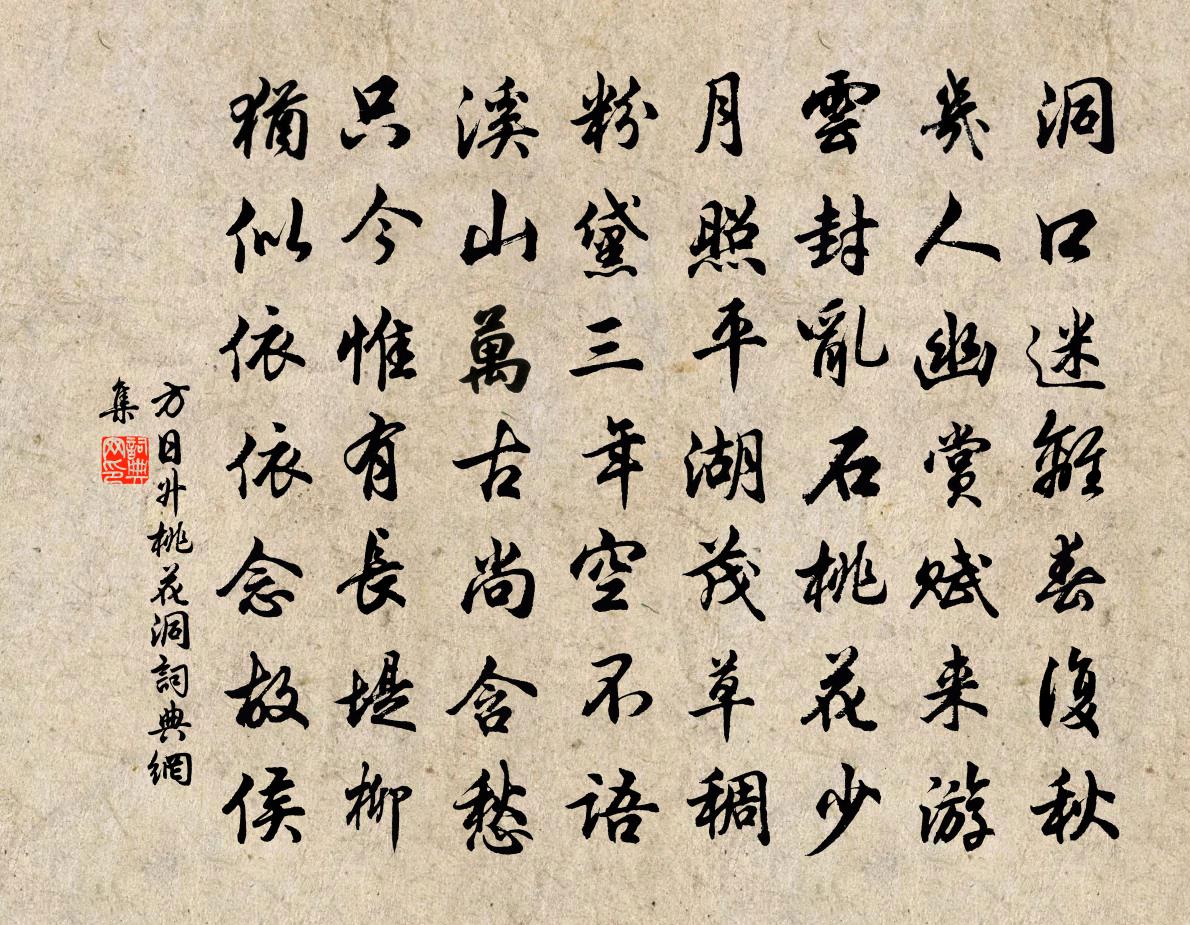 洞口迷離春復秋
幾人幽賞賦来游
雲封亂石桃花少
月照平湖茂草稠
粉黛三年空不語
溪山萬古尚含愁
只今惟有長堤柳
猶似依依念故侯
方日升桃花洞詞典網
集
詞典
网印